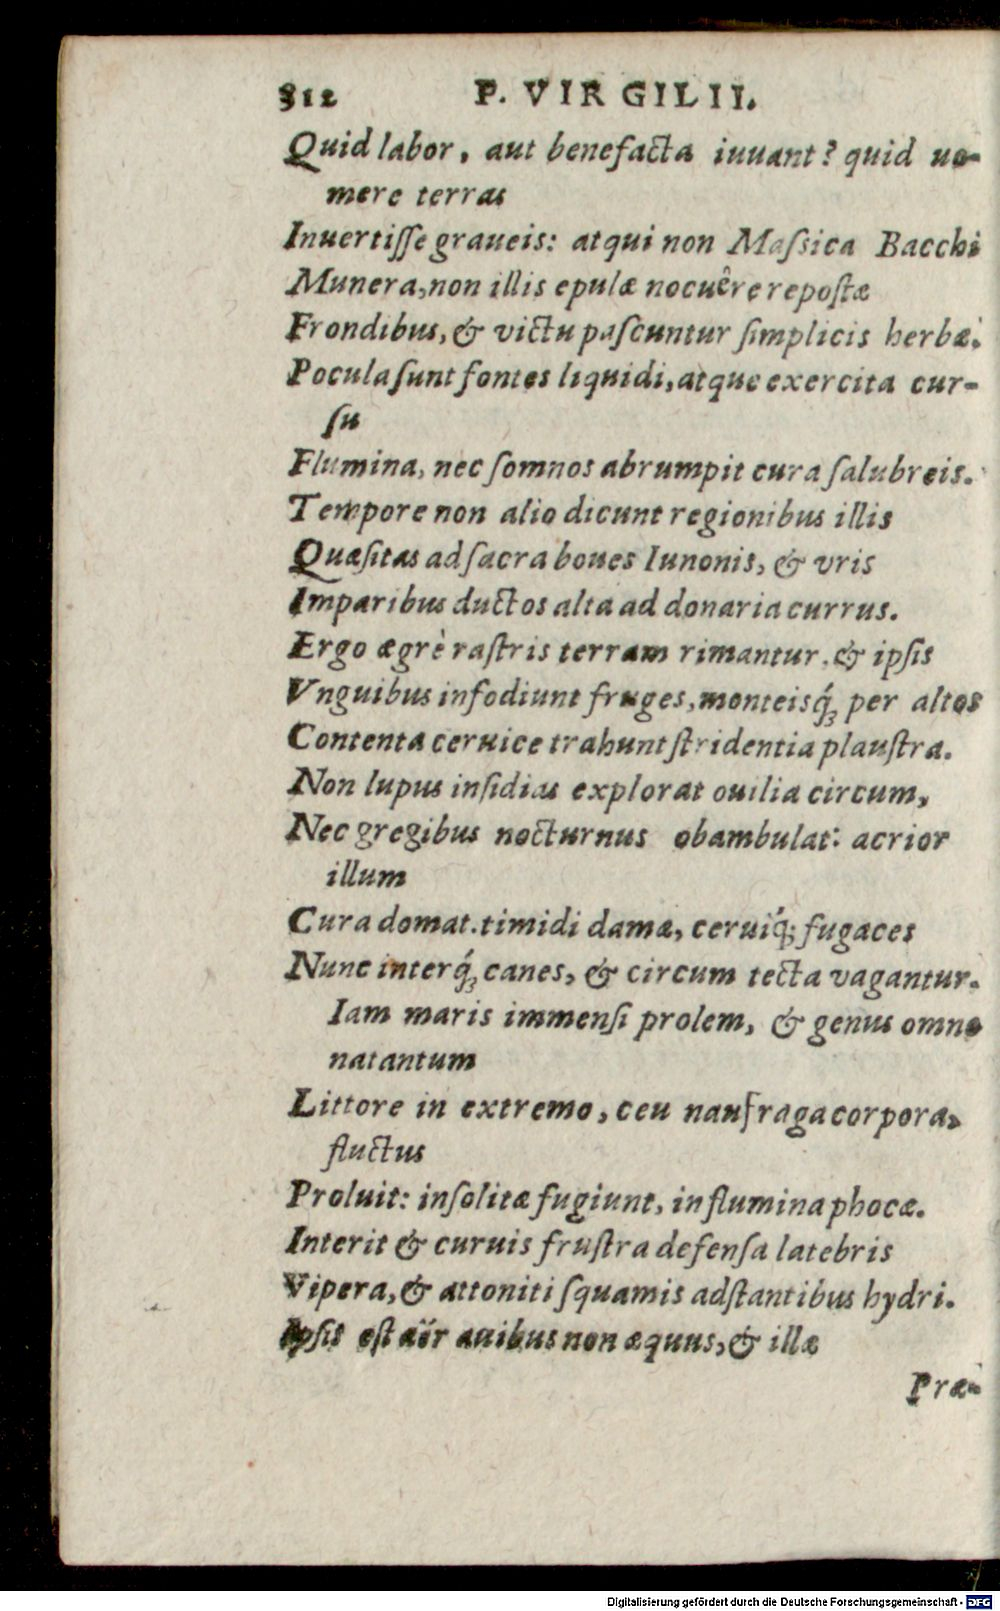 312 P. VIRGILII.
Quid labor, aut benefacta iuuant? quid uo-
mere terras
Inuertiſſe graueis: atqui non Maſsica Bacchi
Munera, non illis epulæ nocuêre repoſtæ
Frondibus, & victu paſcuntur ſimplicis herbæ.
Pocula ſunt fontes liquidi, atque exercita cur-
ſu
Flumina, nec ſomnos abrumpit cura ſalubreis.
Tempore non alio dicunt regionibus illis
Quæſitas ad ſacra boues Iunonis, & vris
Imparibus ductos alta ad donaria currus.
Ergo ægrè raſtris terram rimantur, & ipſis
Vnguibus infodiunt fruges, monteisq́; per altos
Contenta ceruice trahunt ſtridentia plauſtra.
Non lupus inſidias explorat ouilia circum,
Nec gregibus nocturnus obambulat: acrior
illum
Cura domat. timidi damæ, ceruiq́; fugaces
Nunc interq́; canes, & circum tecta vagantur.
Iam maris immenſi prolem, & genus omne
natantum
Littore in extremo, ceu naufraga corpora,
fluctus
Proluit: inſolitæ fugiunt, in flumina phocæ.
Interit & curuis fruſtra defenſa latebris
Vipera, & attoniti ſquamis adſtantibus hydri.
Ipſis eſt aër auibus non æquus, & illæ
Præ-
Digitalisierung gefördert durch die Deutsche Forschungsgemeinschaft - DFG